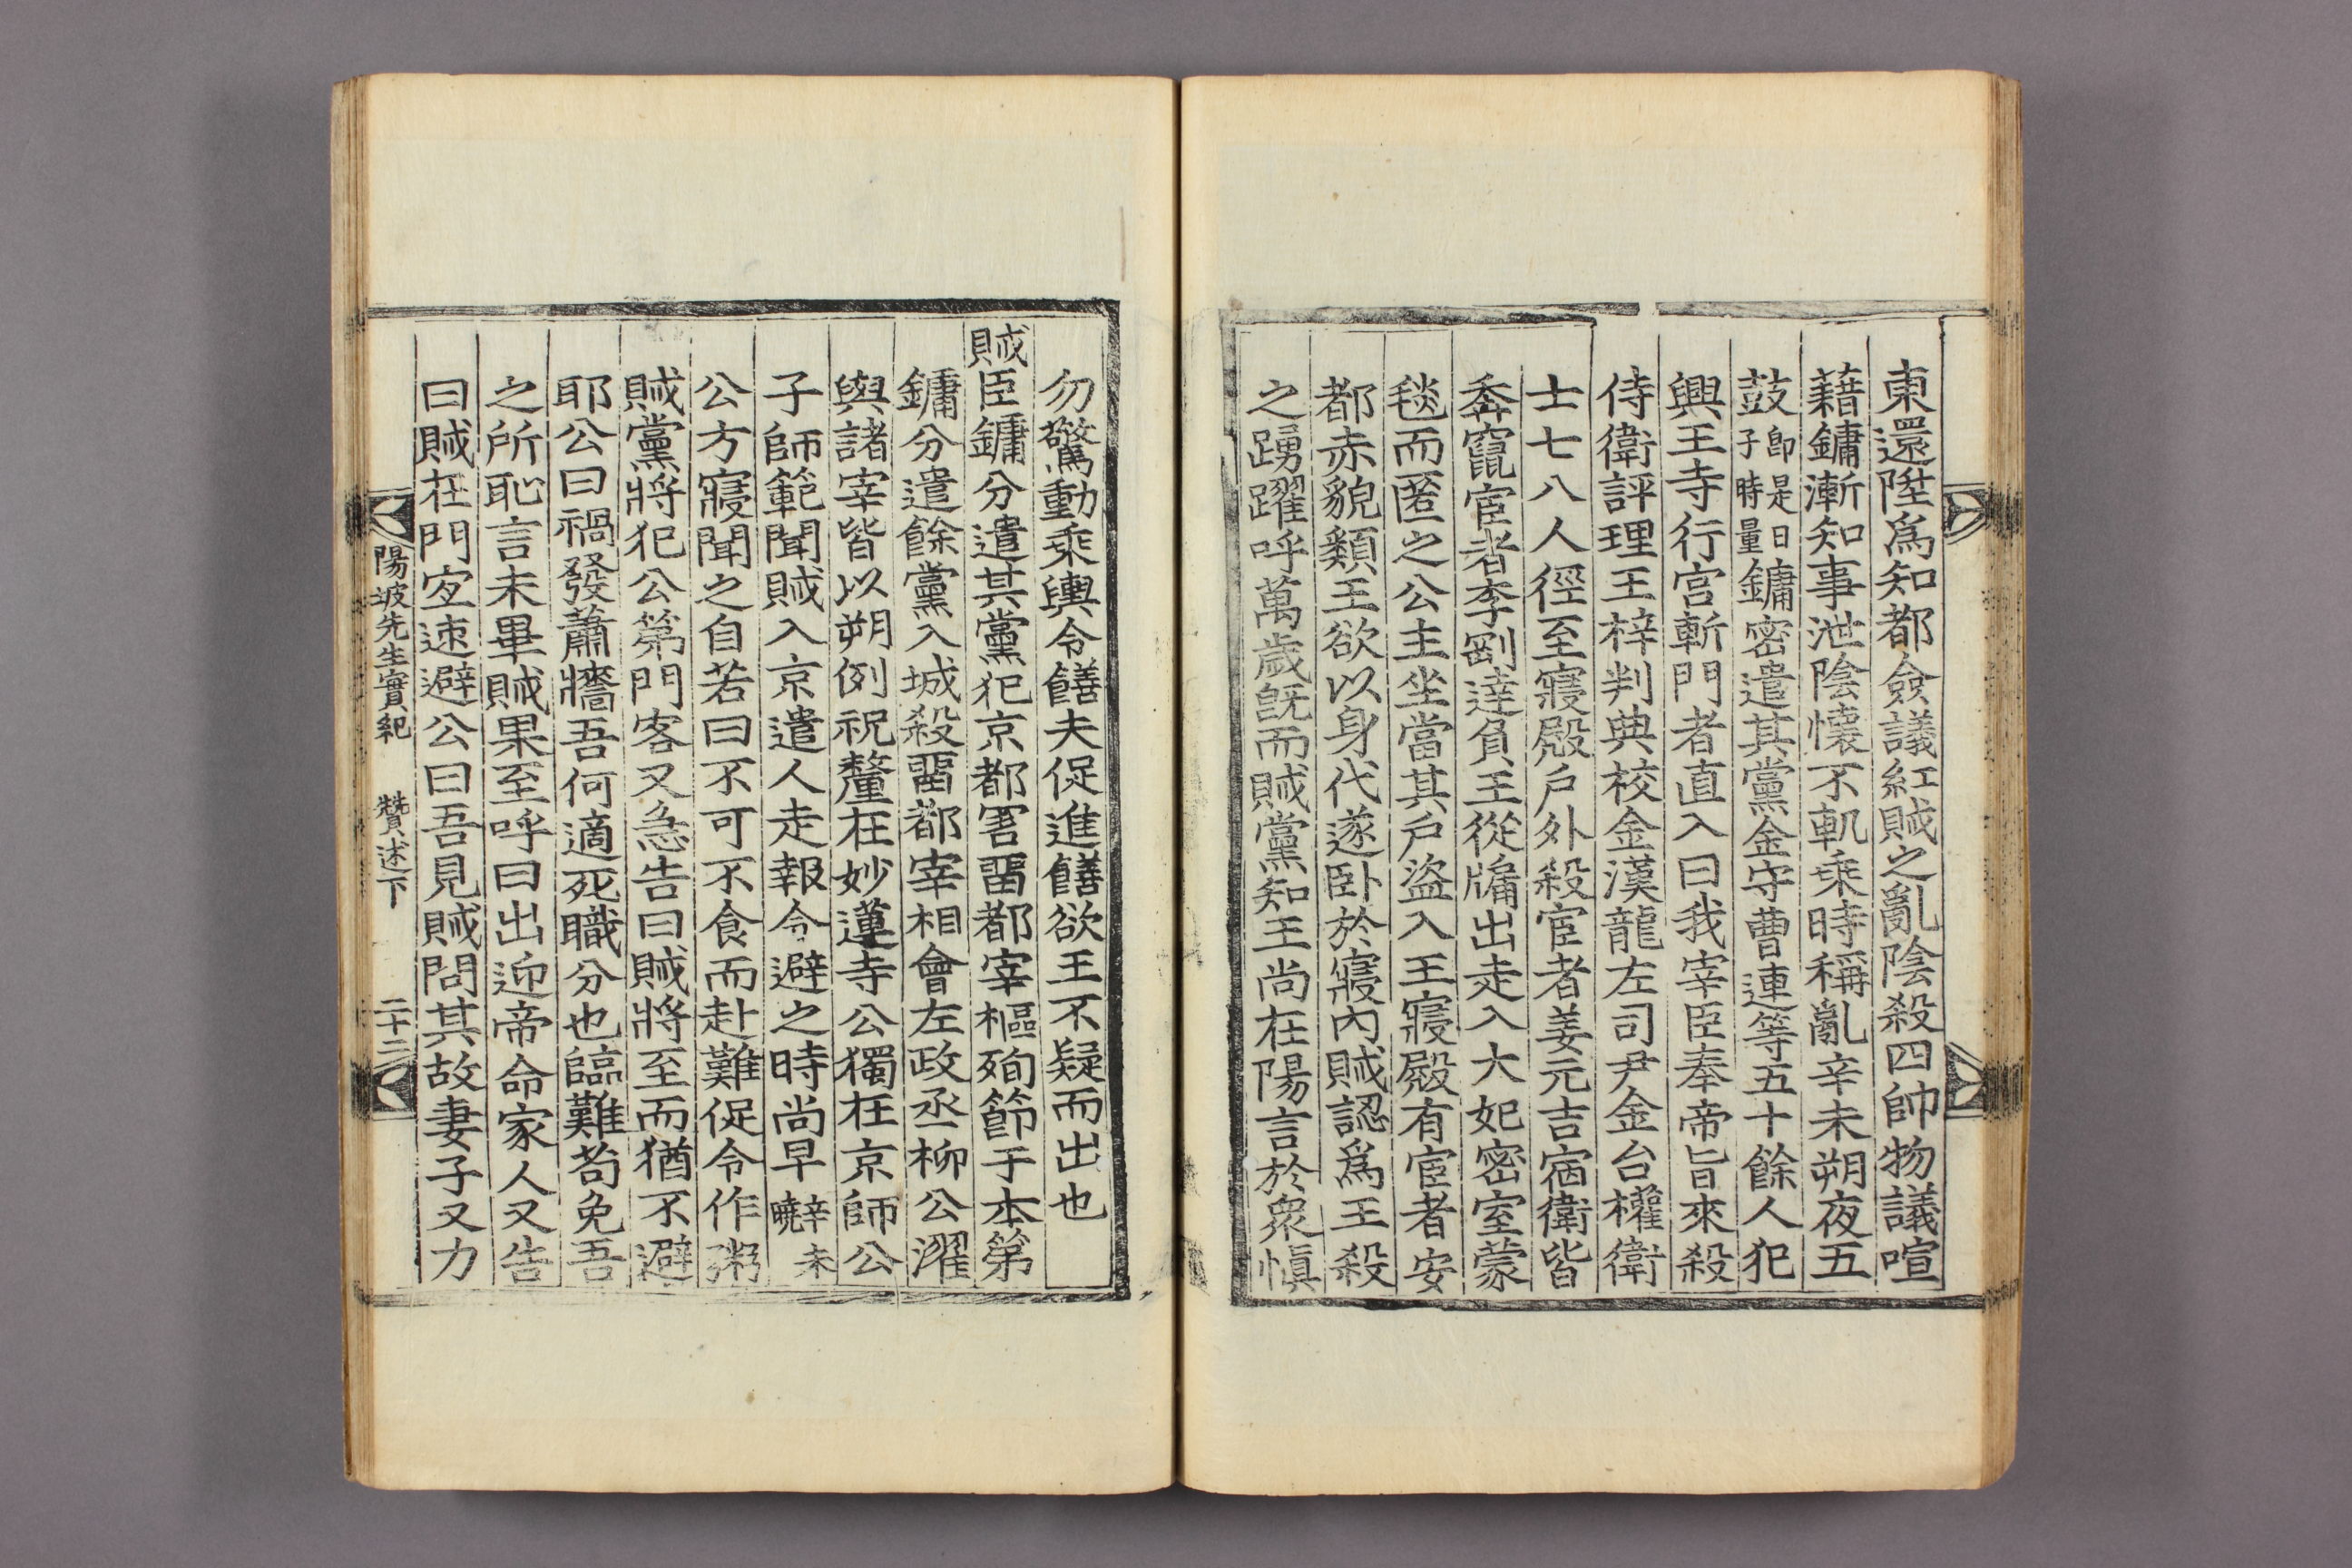 東還陞爲知都僉議紅賊之亂陰殺四帥物議喧
藉鏞漸知事泄陰懷不軌乘時稱亂辛未朔夜五
鼓卽是日子時量鏞密遣其黨金守曹連等五十餘人犯
興王寺行宮斬門者直入曰我宰臣奉帝旨來殺
侍衛評理王梓判典校金漢龍左司尹金台權衛
士七八人徑至寢殿戶外殺宦者姜元吉宿衛皆
奔竄宦者李剛達負王從牖出走入大妃密室蒙
毯而匿之公主坐當其戶盜入王寢殿有宦者安
都赤貌類王欲以身代遂卧於寢內賊認爲王殺
之踴躍呼萬歲旣而賊黨知王尙在陽言於衆愼
勿驚動乘輿令饍夫促進饍欲王不疑而出也
賊臣鏞分遣其黨犯京都害畱都宰樞殉節于本第
鏞分遣餘黨入城殺畱都宰相會左政丞柳公濯
與諸宰皆以朔例祝釐在妙蓮寺公獨在京師公
子師範聞賊入京遣人走報令避之時尙早辛未曉
公方寢聞之自若曰不可不食而赴難促令作粥
賊黨將犯公第門客又急告曰賊將至而猶不避
耶公曰禍發蕭牆吾何適死職分也臨難苟免吾
之所恥言未畢賊果至呼曰出迎帝命家人又告
曰賊在門宜速避公曰吾見賊問其故妻子又力
陽坡先生實紀 贊述下 二十二